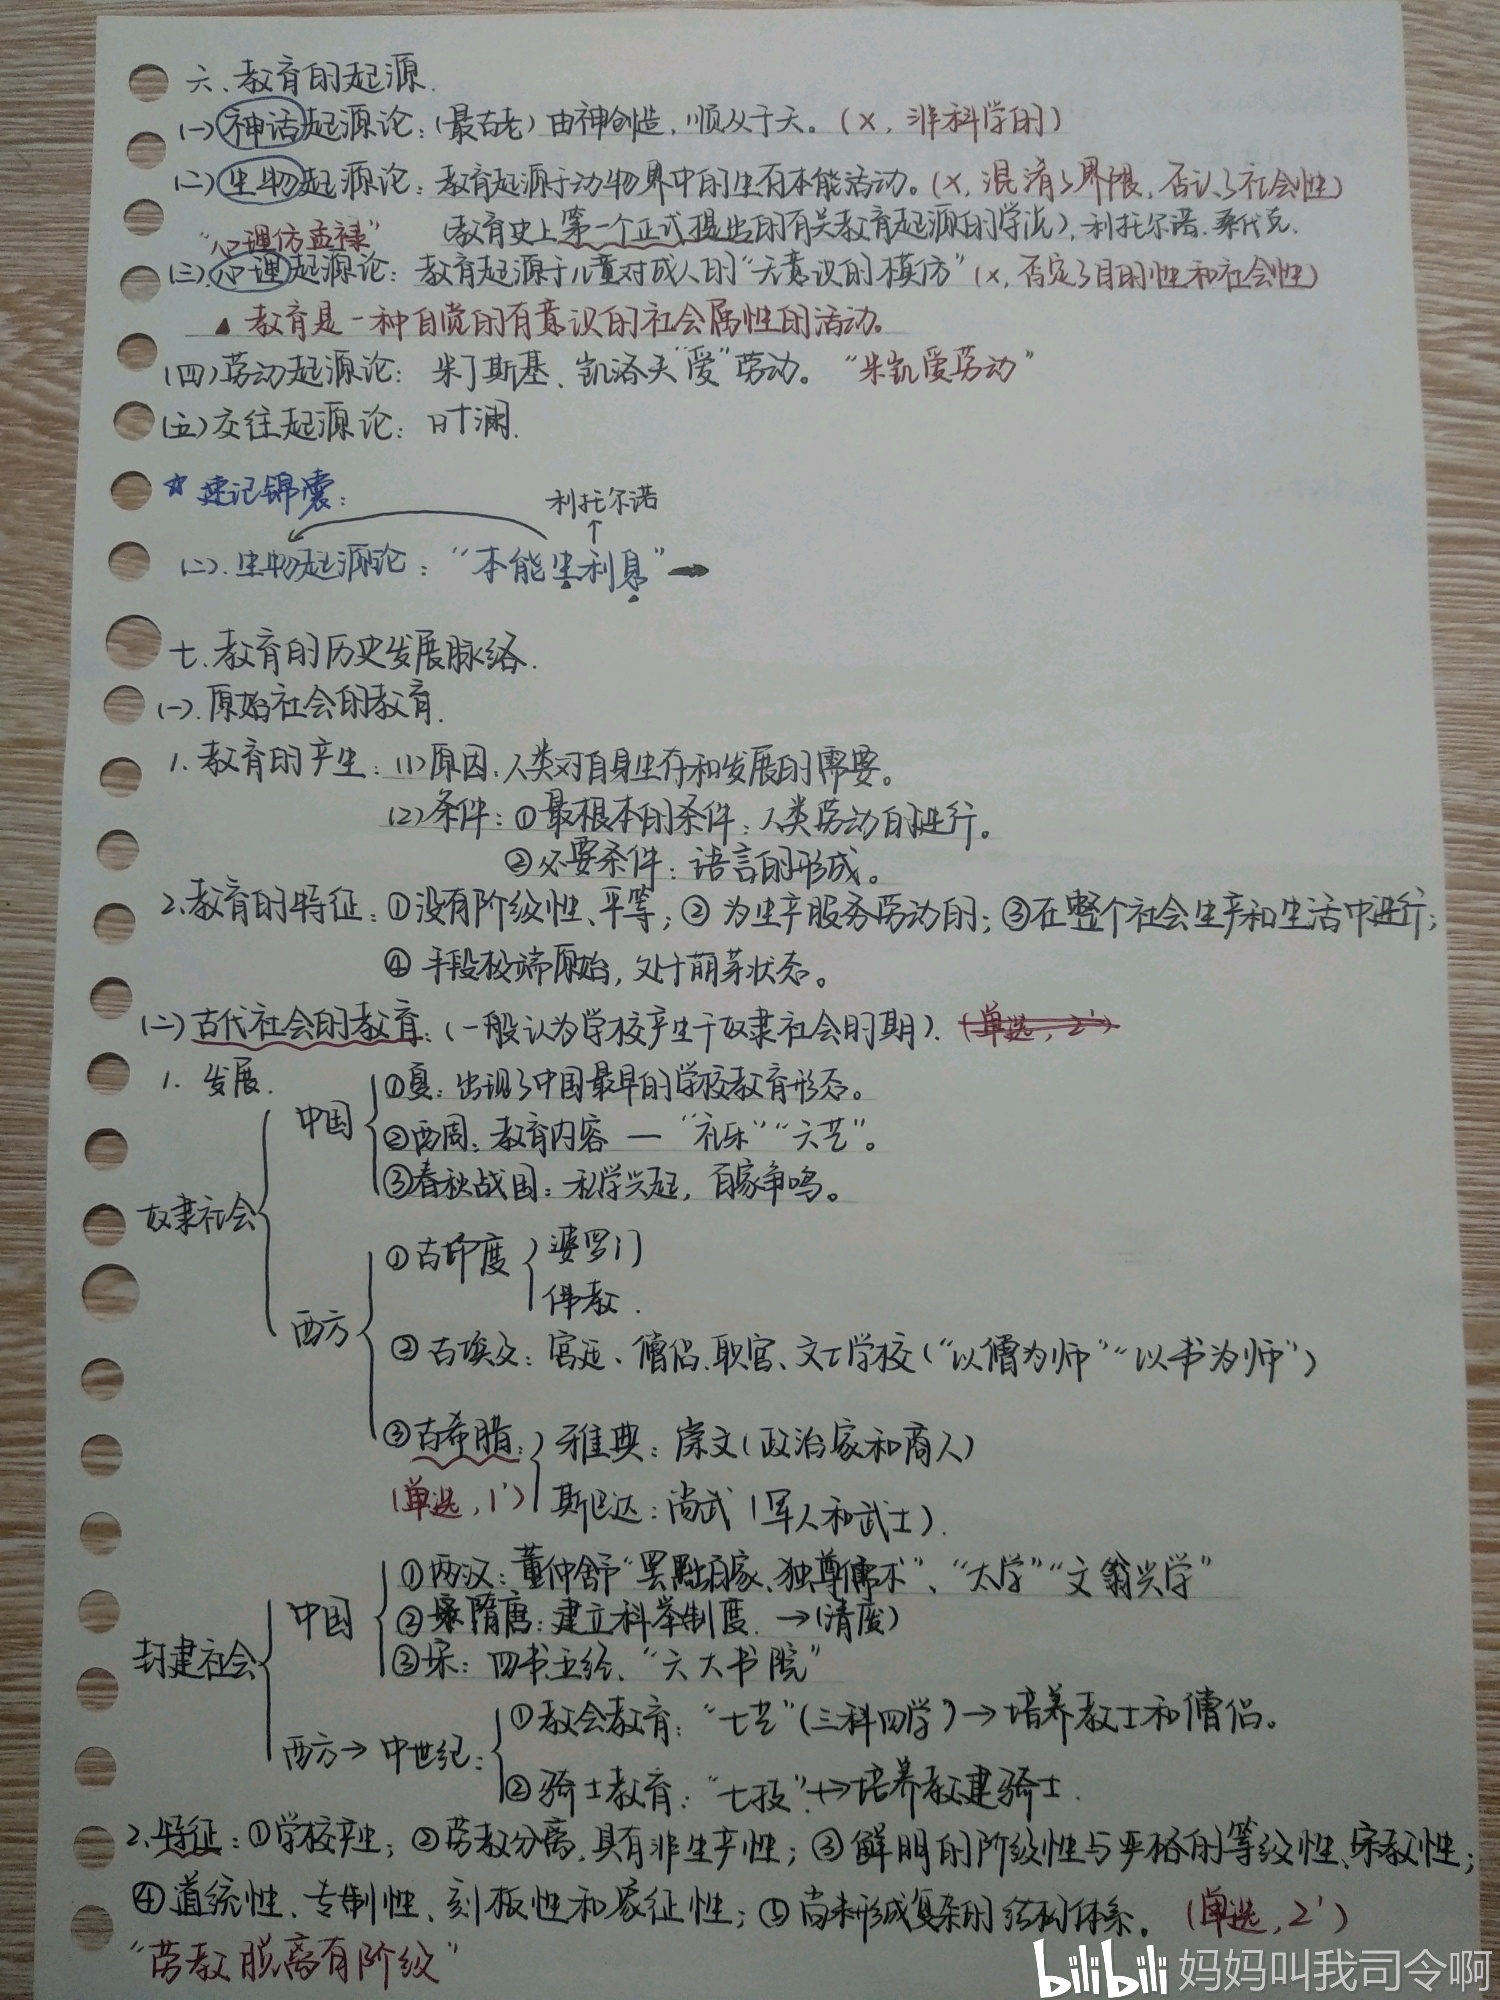 六、教育的起源.
(一)神话起源论:(最古老)由神创造,顺从于天。(×,非科学的)
(二)生物起源论:教育起源于动物界中的生存本能活动。(×,混淆了界限,否认了社会性)
(教育史上第一个正式提出的有关教育起源的学说),利托尔诺、桑代克.
“心理仿孟禄”
(三)心理起源论:教育起源于儿童对成人的“无意识的模仿”(×,否定了目的性和社会性)
▲ 教育是一种自觉的有意识的社会属性的活动。
(四)劳动起源论:米丁斯基、凯洛夫“爱”劳动。“米凯爱劳动”
(五)交往起源论:叶澜.
☆ 速记锦囊:
利托尔诺
(二).生物起源论:“本能生利息”
七.教育的历史发展脉络.
(一).原始社会的教育.
1.教育的产生:(1)原因:人类对自身生存和发展的需要。
(2)条件:①最根本的条件:人类劳动的进行。
②必要条件:语言的形成。
2.教育的特征:①没有阶级性、平等;②为生产服务劳动的;③在整个社会生产和生活中进行;
④手段极端原始,处于萌芽状态。
(二)古代社会的教育:(一般认为学校产生于奴隶社会时期).(单选,2')
1. 发展.
奴隶社会
中国
①夏:出现了中国最早的学校教育形态。
②西周:教育内容 — “礼乐”“六艺”。
③春秋战国:私学兴起,百家争鸣。
西方
①古印度
婆罗门
佛教.
②古埃及:宫廷、僧侣、职官、文士学校(“以僧为师”“以书为师”)
③古希腊:
(单选,1')
雅典:崇文(政治家和商人)
斯巴达:尚武(军人和武士).
封建社会
中国
①两汉:董仲舒“罢黜百家、独尊儒术”、“太学”“文翁兴学”
②隋唐:建立科举制度.→(清废)
③宋:四书五经、“六大书院”
西方→中世纪:
①教会教育:“七艺”(三科四学)→培养教士和僧侣。
②骑士教育:“七技”.→培养教建骑士.
2.特征:①学校产生;②劳教分离,具有非生产性;③鲜明的阶级性与严格的等级性、宗教性;
④道统性、专制性、刻板性和象征性;⑤尚未形成复杂的结构体系。(单选,2')
“劳教脱离有阶级”
bilibili 妈妈叫我司令啊